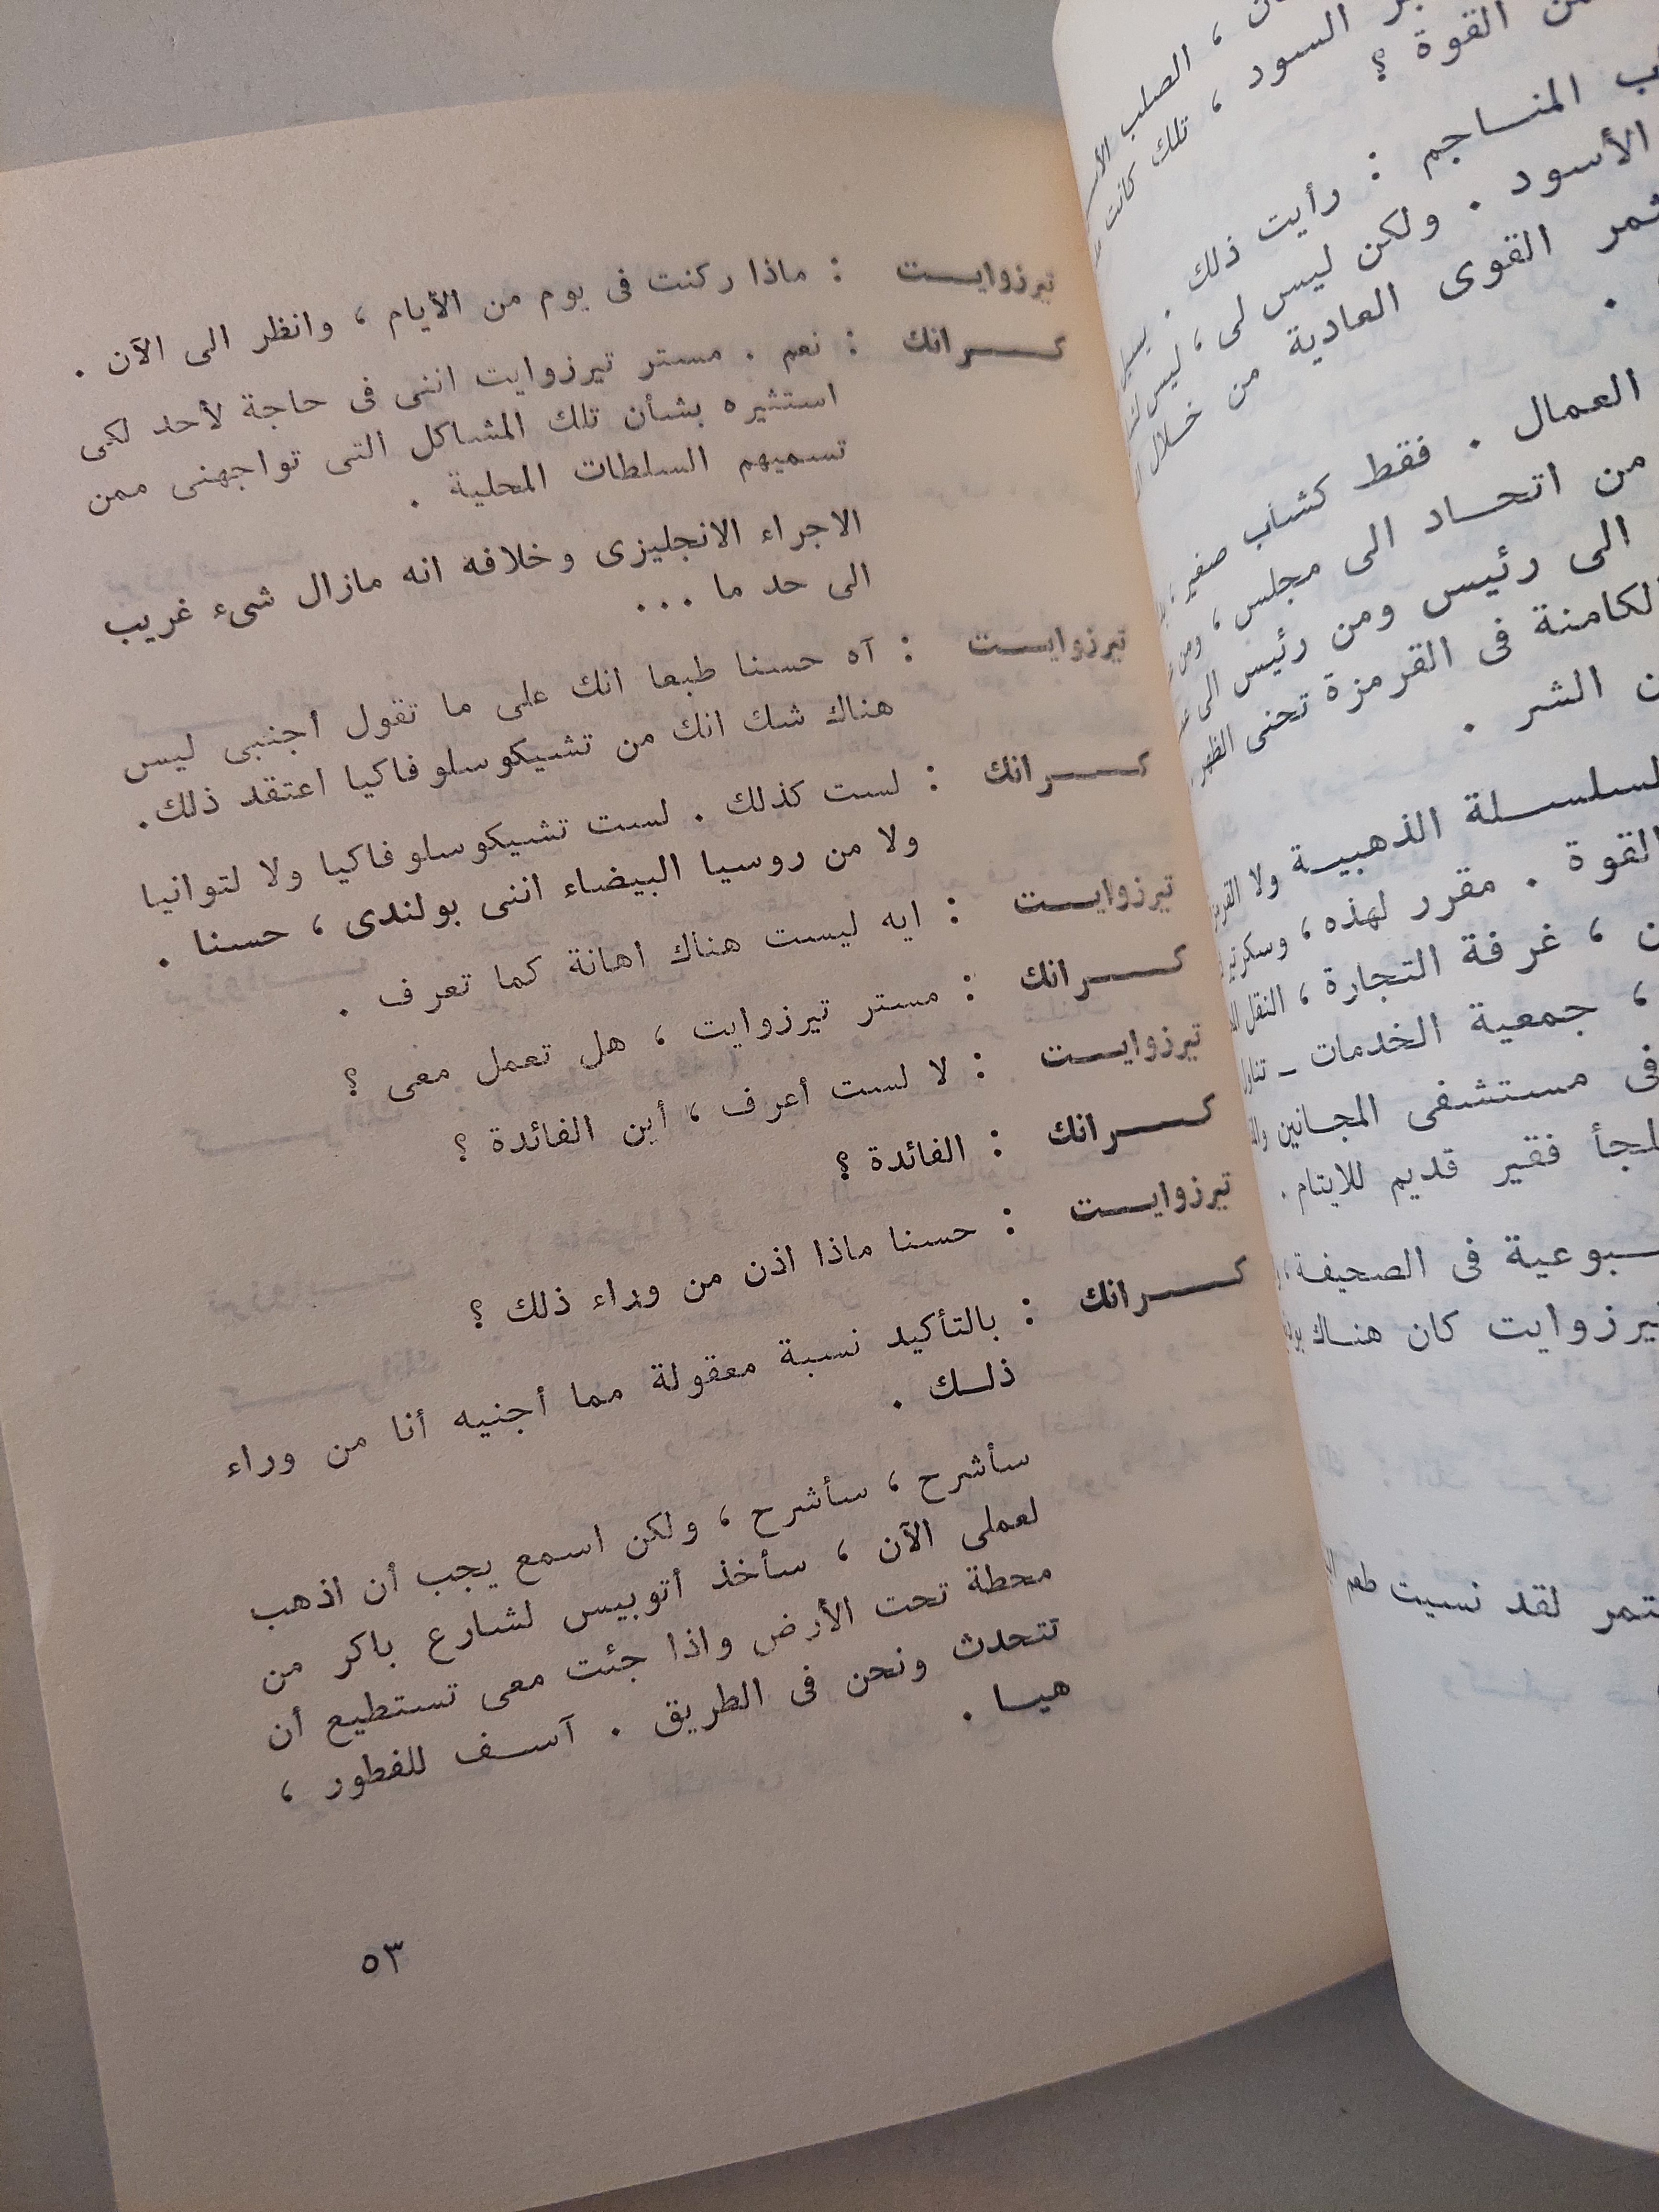 ن ، الصلب
السود ، تلك كانت
القوة ؟
المنـاجم : رأيت ذلك .
الأسود . ولكن ليس لى ، ليس
القوى العادية من خلال
.
العمال . فقط كشاب صغير
من اتحـاد الى مجلس ،
الى رئيس ومن رئيس الى
فى القرمزة تحنى الظهر
الشر .
الذهبيـة ولا
القوة . مقرر لهذه ،
، غرفة التجارة ، النقل
، جمعية الخدمات ـ
فى مستشفى المجـانين
فقير قديم للايتام .
فى الصحيفة
كان هنـاك
لقد نسيت طعم
تيرزوايـت : ماذا ركنت فى يوم من الأيام ، وانظر الى الآن .
كـرانك : نعم . مستر تيرزوايت اننى فى حاجة لأحد لكى
استثيره بشأن تلك المشاكل التى تواجهنى ممن
تسميهم السلطات المحلية .
الاجراء الانجليزى وخلافه انه مازال شىء غريب
الى حد ما ...
تيرزوايـت : آه حسنا طبعا انك على ما تقول أجنبى ليس
هناك شك انك من تشيكوسلوفاكيا اعتقد ذلك.
كـرانك : لست كذلك . لست تشيكوسلوفاكيا ولا لتوانيا
ولا من روسيا البيضاء اننى بولندى ، حسنا .
تيرزوايـت : ايه ليست هناك اهانة كما تعرف .
كـرانك : مستر تيرزوايت ، هل تعمل معى ؟
تيرزوايـت : لا لست أعرف ، أين الفائدة ؟
كـرانك : الفائدة ؟
تيرزوايـت : حسنا ماذا اذن من وراء ذلك ؟
كـرانك : بالتأكيد نسبة معقولة مما أجنيه أنا من وراء
ذلـك .
سأشرح ، سأشرح ، ولكن اسمع يجب أن اذهب
لعملى الآن ، سأخذ أتوبيس لشارع باكر من
محطة تحت الأرض واذا جئت معى تستطيع أن
تتحدث ونحن فى الطريق . آسـف للفطور ،
هيـا .
٥٣